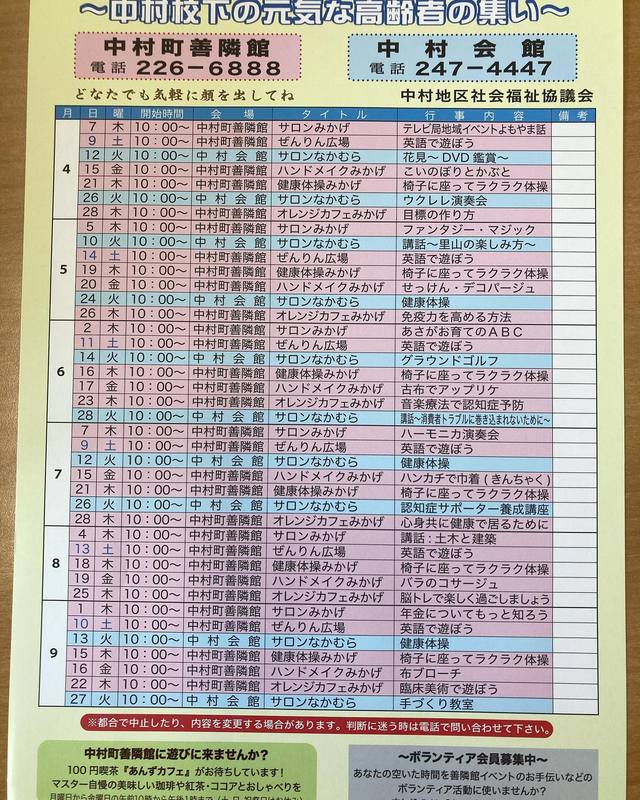 ～中村校下の元気な高齢者の集い～
中村町善隣館
電話 226－6888
中村会館
電話 247－4447
どなたでも気軽に顔を出してね
中村地区社会福祉協議会
月 日 曜 開始時間 会場 タイトル 行事内容 備考
4
7 木 10：00～ 中村町善隣館 サロンみかげ テレビ局地域イベントよもやま話
9 土 10：00～ 中村町善隣館 ぜんりん広場 英語で遊ぼう
12 火 10：00～ 中村会館 サロンなかむら 花見～DVD鑑賞～
15 金 10：00～ 中村町善隣館 ハンドメイクみかげ こいのぼりとかぶと
21 木 10：00～ 中村町善隣館 健康体操みかげ 椅子に座ってラクラク体操
26 火 10：00～ 中村会館 サロンなかむら ウクレレ演奏会
28 木 10：00～ 中村町善隣館 オレンジカフェみかげ 目標の作り方
5
5 木 10：00～ 中村町善隣館 サロンみかげ ファンタジー・マジック
10 火 10：00～ 中村会館 サロンなかむら 講話～里山の楽しみ方～
14 土 10：00～ 中村町善隣館 ぜんりん広場 英語で遊ぼう
19 木 10：00～ 中村町善隣館 健康体操みかげ 椅子に座ってラクラク体操
20 金 10：00～ 中村町善隣館 ハンドメイクみかげ せっけん・デコパージュ
24 火 10：00～ 中村会館 サロンなかむら 健康体操
26 木 10：00～ 中村町善隣館 オレンジカフェみかげ 免疫力を高める方法
6
2 木 10：00～ 中村町善隣館 サロンみかげ あさがお育てのABC
11 土 10：00～ 中村町善隣館 ぜんりん広場 英語で遊ぼう
14 火 10：00～ 中村会館 サロンなかむら グラウンドゴルフ
16 木 10：00～ 中村町善隣館 健康体操みかげ 椅子に座ってラクラク体操
17 金 10：00～ 中村町善隣館 ハンドメイクみかげ 古布でアップリケ
23 木 10：00～ 中村町善隣館 オレンジカフェみかげ 音楽療法で認知症予防
28 火 10：00～ 中村会館 サロンなかむら 講話～消費者トラブルに巻き込まれないために～
7
7 木 10：00～ 中村町善隣館 サロンみかげ ハーモニカ演奏会
9 土 10：00～ 中村町善隣館 ぜんりん広場 英語で遊ぼう
12 火 10：00～ 中村会館 サロンなかむら 健康体操
15 金 10：00～ 中村町善隣館 ハンドメイクみかげ ハンカチで巾着(きんちゃく)
21 木 10：00～ 中村町善隣館 健康体操みかげ 椅子に座ってラクラク体操
26 火 10：00～ 中村会館 サロンなかむら 認知症サポーター養成講座
28 木 10：00～ 中村町善隣館 オレンジカフェみかげ 心身共に健康で居るために
8
4 木 10：00～ 中村町善隣館 サロンみかげ 講話：土木と建築
13 土 10：00～ 中村町善隣館 ぜんりん広場 英語で遊ぼう
18 木 10：00～ 中村町善隣館 健康体操みかげ 椅子に座ってラクラク体操
19 金 10：00～ 中村町善隣館 ハンドメイクみかげ バラのコサージュ
25 木 10：00～ 中村町善隣館 オレンジカフェみかげ 脳トレで楽しく過ごしましょう
9
1 木 10：00～ 中村町善隣館 サロンみかげ 年金についてもっと知ろう
10 土 10：00～ 中村町善隣館 ぜんりん広場 英語で遊ぼう
13 火 10：00～ 中村会館 サロンなかむら 健康体操
15 木 10：00～ 中村町善隣館 健康体操みかげ 椅子に座ってラクラク体操
16 金 10：00～ 中村町善隣館 ハンドメイクみかげ 布ブローチ
22 木 10：00～ 中村町善隣館 オレンジカフェみかげ 臨床美術で遊ぼう
27 火 10：00～ 中村会館 サロンなかむら 手づくり教室
※都合で中止したり、内容を変更する場合があります。判断に迷う時は電話で問い合わせて下さい。
中村町善隣館に遊びに来ませんか？
100円喫茶『あんずカフェ』がお待ちしています！
マスター自慢の美味しい珈琲や紅茶・ココアとおしゃべりを
月曜日から金曜日の午前10時から午後1時まで(土・日・祝祭日はお休み)
～ボランティア会員募集中～
あなたの空いた時間を善隣館イベントのお手伝いなどの
ボランティア活動に使いませんか？